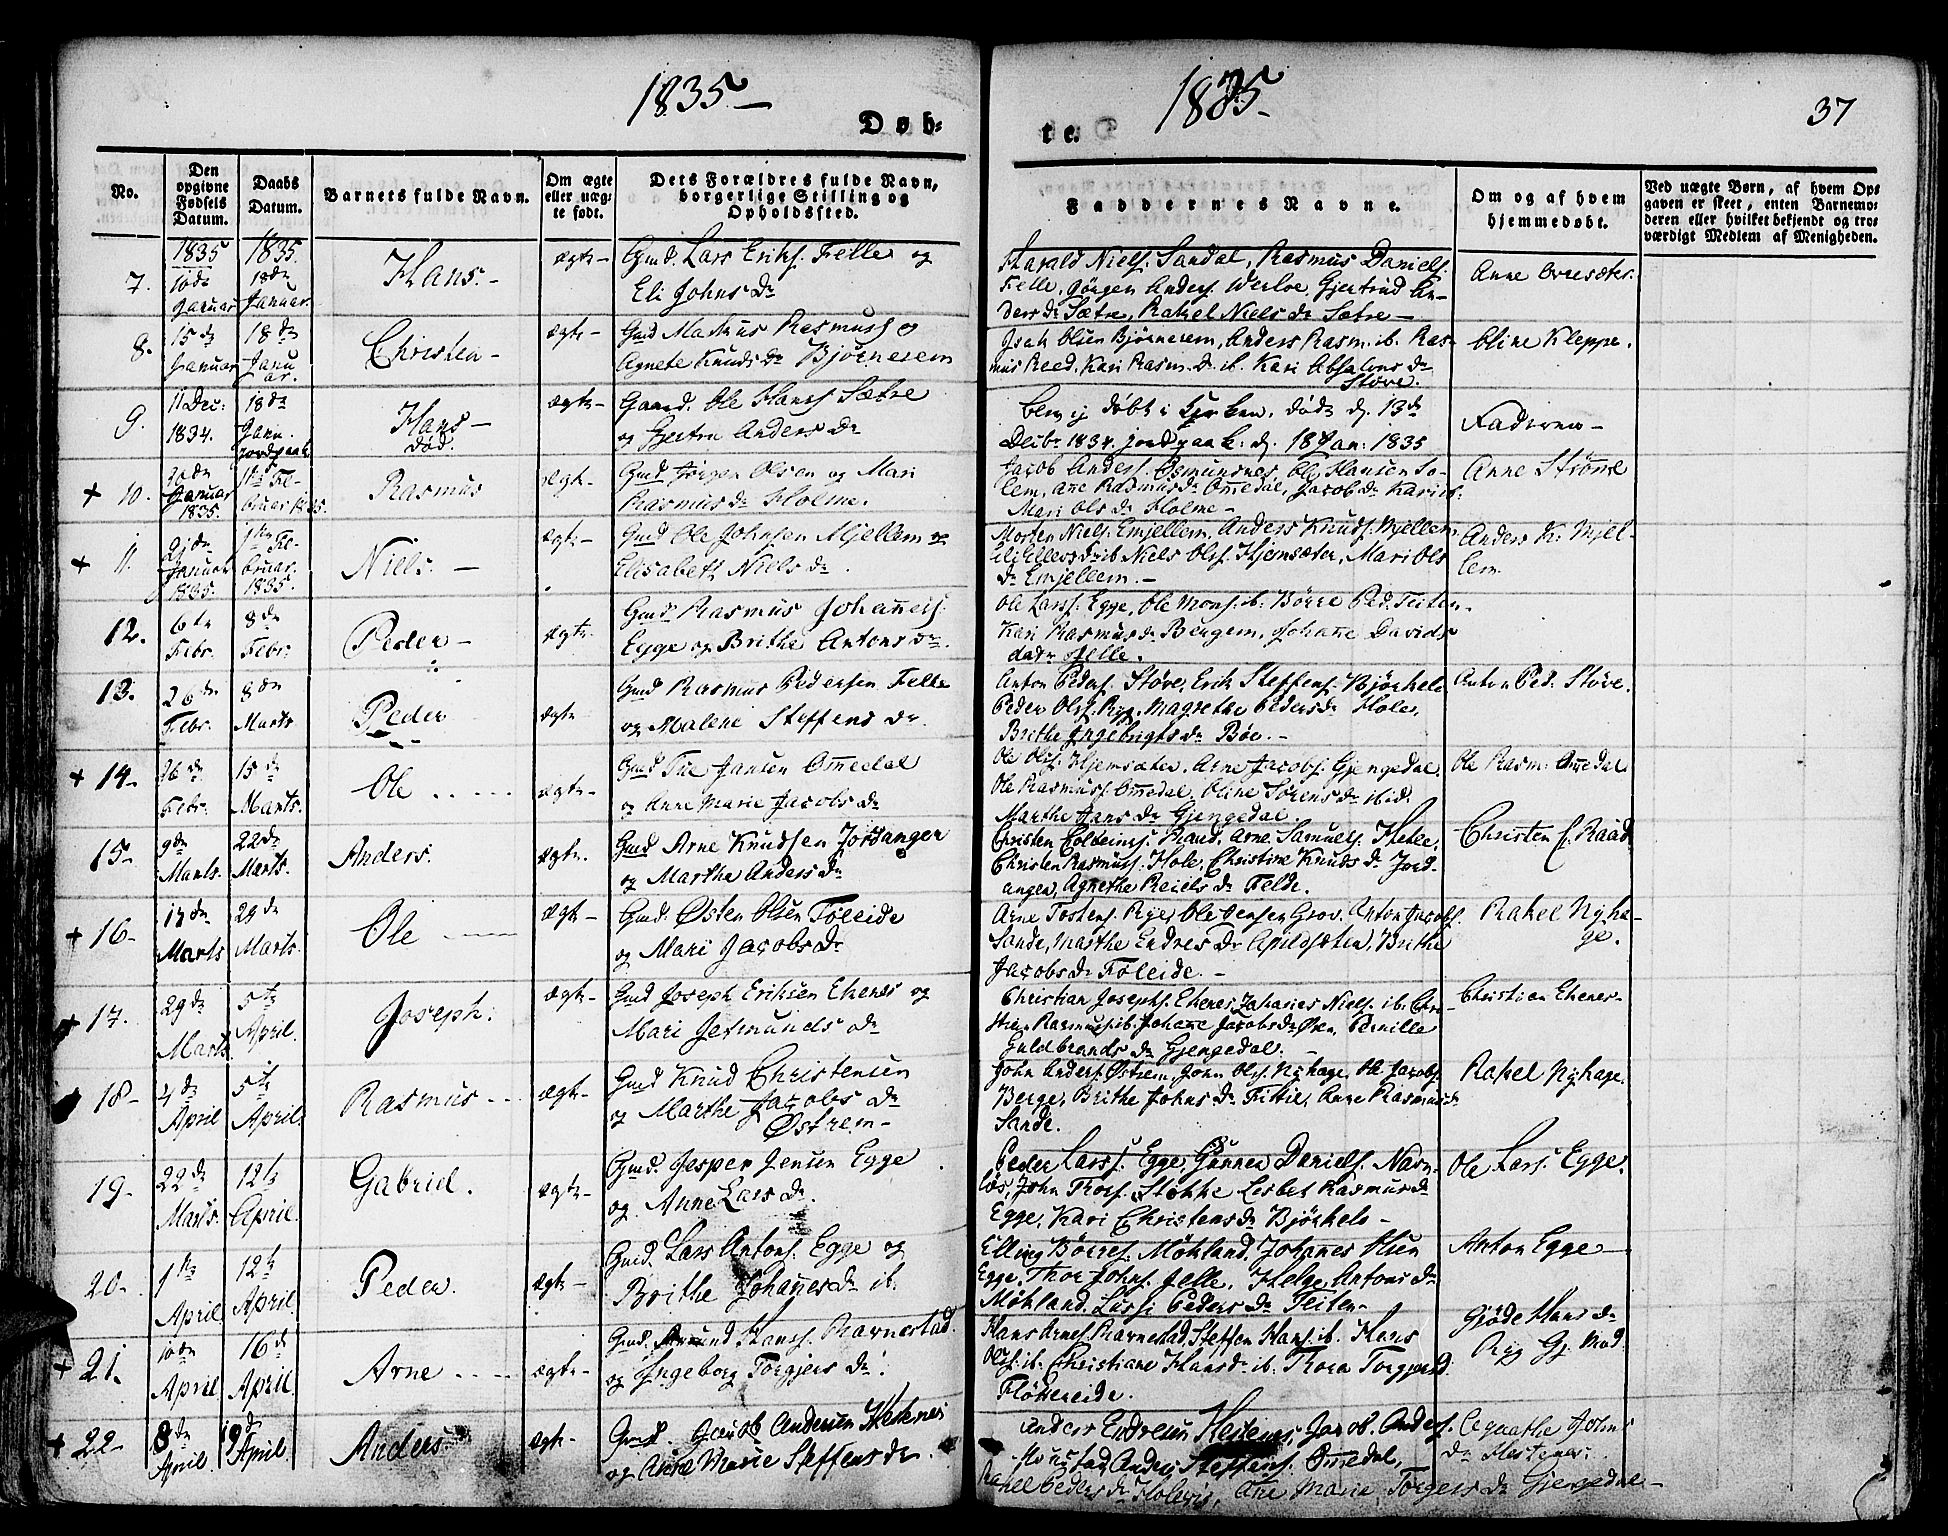 1835-
1835-
37
Døb-
te.
No.
Den opgivne Fødsels Datum.
Daabs Datum.
Barnets fulde Navn.
Om ægte eller uæg-te født.
Dets Forældres fulde Navn, borgerlige Stilling og Opholdssted.
Faddernes Navne.
Om og af hvem hjemmedøbt.
Ved uægte Børn, af hvem Op-gaven er skeet, enten Barnemo-deren eller hvilket bekjendt og tro-værdigt Medlem af Menigheden.
1835 1835.
7. 10de Januar 18de Januar. Hans.- ægte- Gmd. Lars Eriks. Felle og
Eli Johns Dr
Harald Niels. Sandal, Rasmus Daniels.
Felle, Jørgen Anders. Werloe, Gjertrud An-
ders Dr Sætre, Rakel Niels Dr Sætre-
Anne Ovresæter.
8. 15de Januar 18de Januar. Christen- ægte- Gmd Markus Rasmuss og
Agnete Knuds Dr Bjørnerem
Isak Olsen Bjørnerem, Anders Rasm. ib. Ras-
mus Reed, Kari Rasm. Dr ib. Kari Absalons Dr
Støve.
Oline Kleppe.
9. 11 Dec: 1834. 18de Janu. Jordpaak. Hans- død. ægte- Gaard. Ole Hanss Sætre
og Gjertru Anders Dr
blev ej døbt i Kirken, døde d. 13de
Decbr 1834. jordpaak: d. 18 Jan: 1835
Faderen-
+ 10. Januar 1835. Februar 1835. Rasmus ægte- Gmd Jørgen Olsen og Mari
Rasmus Dr Holme.
Jacob Anders. Osmundnes, Ole Hansen So-
lem, Anne Rasmus Dr Ommedal, Jacob Dr Karin
Mari Ols Dr Holme-
Anne Strømme
+ 11. Januar 1835. Februar. 1835. Niels.- ægte- Gmd Ole Johnsen Mjellem og
Elisabeth Niels Dr.
Morten Niels. Emjellem, Anders Knuds. Mjellem
Eli Ellers Dr ib Niels Ols. Hjemsæter, Mari Ols
Dr Emjellem.-
Anders K. Mjel-
lem.
12. 6te Febr. 8de Febr: Peder- ægte. Gmd Rasmus Johannes.
Egge og Brithe Antons Dr.
Ole Larss. Egge, Ole Mons. ib. Børre Ped. Teiten-
Kari Rasmus Dr Bergem, Johanne Davids
datr Jelle.
13. 26de Febr. 8de Marts Peder ægte Gmd Rasmus Pedersen Felle
og Malene Steffens Dr.
Anton Peders. Støve, Erik Steffens. Bjørkelo
Peder Ols. Ryg, Magrethe Peders Dr Hole,
Brithe Ingebrigts Dr Bøe.-
Anton Ped. Støve.
+ 14- 26de Febr. 15de Marts. Ole ægte- Gmd Tue Jansen Ommedal
og Anne Marie Jacobs Dr
Ole Ols. Hjemsæter, Arne Jacobs. Gjengedal,
Ole Rasmuss. Ommedal, Oline Sørens Dr ibid.
Marthe Hans Dr Gjengedal.
Ole Rasm: Ommedal
15- 9de Marts. 22de Marts. Anders. ægte. Gmd Arne Knudsen Jordanger
og Marthe Anders Dr
Christen Colbeins. Raad, Arne Samuels. Hetle,
Christen Rasmuss. Hole, Christine Knuds Dr Jord-
anger, Agnethe Reiels Dr Felde.
Christen C. Raad
+ 16- Marts 29de Marts. Ole ægte- Gmd. Østen Olsen Føleide
og Mari Jacobs Dr
Arne Tostens. Ryg, Ole Jensen Grov. Anton Jacobs.
Sande, Marthe Endres Dr Apildsæter, Brithe
Jacobs Dr Føleide.-
Rakel Nyha-
ge.
+ 17. 29de Marts. 5te April. Joseph. ægte- Gmd Joseph Eriksen Ehenes og
Mari Jermunds Dr
Christian Josephs. Ehenes, Johanes Niels. ib. Chri-
stian Rasmuss. ib. Johanne Jacobs Dr Østen, Pernille
Guldbrands Dr Gjengedal.-
Christian Ehenes-
18- 4de April 5te April. Rasmus ægte- Gmd Knud Christensen
og Marthe Jacobs Dr
Østrem-
John Anders. Østrem, John Ols. Nyhage, Ole Jacobs.
Berge, Brithe Johns Dr Fittie, Anne Rasmus Dr
Sande.
Rakel Nyhage
19- 22de Marts. 12te April. Gabriel. ægte- Gmd. Jesper Jensen Egge
og Anne Lars Dr.
Peder Larss. Egge, Gunner Daniels. Navn-
løs, John Thors. Støkke Lesbet Rasmus Dr
Egge, Kari Christens Dr Bjørkelo-
Ole Lars. Egge.
20- April 12te April. Peder. ægte- Gmd. Lars Antons. Egge og
Brithe Johannes Dr ib.
Elling Børres. Møkland, Johannes Olsen
Egge, Thor Johns. Jelle, Helge Antons Dr
Møkland, Lussi Peders Dr Teiten-
Anton Egge-
+ 21. 10de April 16de April. Arne ægte- Gmd. Amund Hanss. Ravnestad.
og Ingeborg Torgjers Dr.
Hans Arnes. Ravnestad, Steffen Hans. ib. Hans
Ols. ib. Christiane Hans Dr ib. Thora Torgjers D.
Fløttereide.
Gjøde Hans Dr
Ryg Gj. Mod.
+ 22- 8de April. 19de April. Anders ægte- Gmd. Jacob Andersen Hestenes
og Anne Marie Steffens Dr.
Anders Endresen Hestenes, Jacob Anders.
Anders Steffens. Ommedal,
Rakel Peders Dr Holevis, Ane Marie Torgers Dr Gjengedal-
Agnethe Johns
Dr Hestenes.